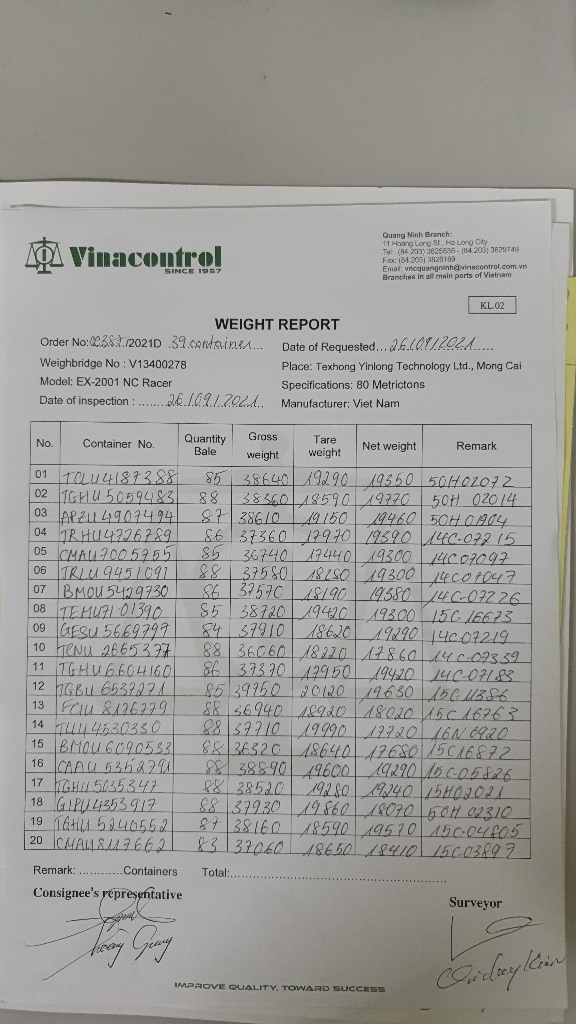 Vinacontrol
SINCE 1957
Quang Ninh Branch:
11 Hoang Long St., Ha Long City
Tel: (84.203) 3825635 - (84.203) 3629749
Fax: (84.203) 3826169
Email: vncquangninh@vinacontrol.com.vn
Branches in all main ports of Vietnam
KL.02
WEIGHT REPORT
Order No: 00387/2021D 39 container
Date of Requested... 26/09/2021
Weighbridge No : V13400278
Place: Texhong Yinlong Technology Ltd., Mong Cai
Model: EX-2001 NC Racer
Specifications: 80 Metrictons
Date of inspection : ........ 26/09/2021
Manufacturer: Viet Nam
No. Container No. Quantity Bale Gross weight Tare weight Net weight Remark
01 TCLU4187388 85 38640 19290 19350 50H02072
02 TGHU 5059483 88 38360 18590 19770 50H 02014
03 APZU 4907494 87 38610 19150 19460 50H 01904
04 TRHU4726789 86 37360 17970 19390 14C-07215
05 CMAU7005755 85 36740 17440 19300 14C07097
06 TRLU 9451091 88 37580 18280 19300 14C07047
07 BMOU 5429730 86 37570 18190 19380 14C-07226
08 TEMU7101390 85 38720 19420 19300 15C 16673
09 GESU 5669797 84 37910 18620 19290 14C07219
10 TCNU 2665377 88 36060 18220 17860 14C-07339
11 TGHU 6604160 86 37370 17950 19420 14C-07183
12 TGBU 6537271 85 39750 20120 19630 15C 11386
13 FCIU 8176779 88 36940 18920 18020 15C 16763
14 4530330 88 37710 19990 17720 16N 6920
15 BMOU 6090533 88 36320 18640 17680 15C16872
16 CAAU 5352791 88 38890 19600 19290 15C-05826
17 TGHU 5035347 88 38520 19280 19240 15H02021
18 GIPU 4353917 88 37930 19860 18070 50H 02310
19 TGHU 5240552 87 38160 18590 19570 15C-04805
20 CMAU8117662 83 37060 18650 18410 15C03897
Remark: ............Containers Total:
Consignee's representative
Surveyor
IMPROVE QUALITY, TOWARD SUCCESS